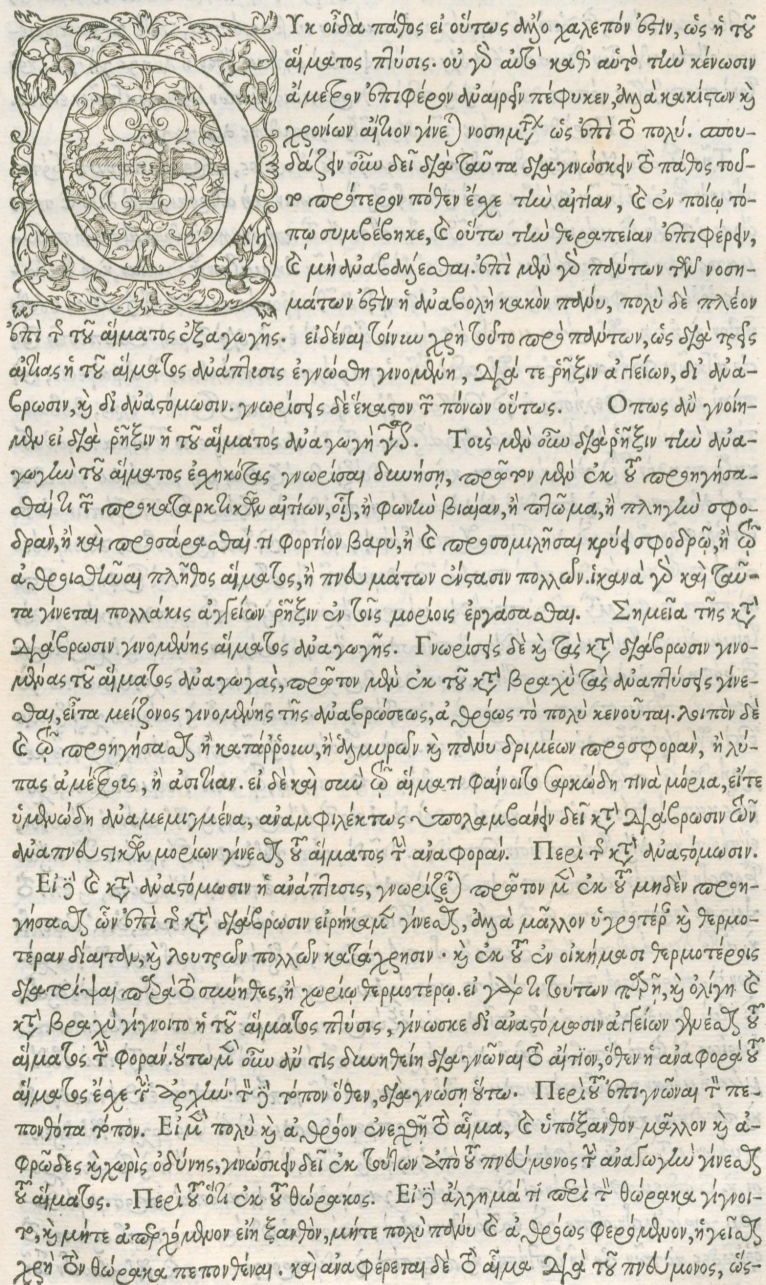 Οὐκ οἶδα πάθος εἰ οὕτως ἄλλο χαλεπόν ἐστιν, ὡς ἡ τοῦ
αἵματος πτύσις. οὐ γὰρ αὐτὸ καθ' αὑτὸ τὴν κένωσιν
ἄμετρον ἐπιφέρον ἀναιρεῖν πέφυκεν, ἀλλὰ κακίστων καὶ
χρονίων αἴτιον γίνεται νοσημάτων ὡς ἐπὶ τὸ πολύ. σπου-
δάζειν οὖν δεῖ διὰ ταῦτα διαγινώσκειν τὸ πάθος τοῦ-
το πρότερον πόθεν ἔχει τὴν αἰτίαν, καὶ ἐν ποίῳ τό-
πῳ συμβέβηκε, καὶ οὕτω τὴν θεραπείαν ἐπιφέρειν,
καὶ μὴ ἀναβάλλεσθαι. ἐπὶ μὲν γὰρ πάντων τῶν νοση-
μάτων ἐστὶν ἡ ἀναβολὴ κακὸν πάνυ, πολὺ δὲ πλέον
ἐπὶ τῆς τοῦ αἵματος ἐξαγωγῆς. εἰδέναι τοίνυν χρὴ τοῦτο πρὸ πάντων, ὡς διὰ τρεῖς
αἰτίας ἡ τοῦ αἵματος ἀνάπτισις ἐγνώσθη γινομένη, διά τε ῥῆξιν ἀγγείων, δι' ἀνά-
βρωσιν, καὶ δι' ἀναστόμωσιν. γνωρίσεις δὲ ἕκαστον τῶν πόνων οὕτως. Ὅπως ἂν γνοίη-
μεν εἰ διὰ ῥῆξιν ἡ τοῦ αἵματος ἀναγωγὴ γέγονε. Τοὺς μὲν οὖν διὰ ῥῆξιν τὴν ἀνα-
γωγὴν τοῦ αἵματος ἐσχηκότας γνωρίσαι δυνήσῃ, πρῶτον μὲν ἐκ τοῦ προηγήσα-
σθαί τι τῶν προκαταρκτικῶν αἰτίων, οἷον, ἢ φωνὴν βιαίαν, ἢ πτῶμα, ἢ πληγὴν σφο-
δράν, ἢ καὶ προσάρασθαί τι φορτίον βαρύ, ἢ καὶ προσομιλῆσαι κρύει σφοδρῷ, ἢ τῷ
ἀθροισθῆναι πλῆθος αἵματος, ἢ πνευμάτων ἔνστασιν πολλῶν. ἱκανὰ γὰρ καὶ ταῦ-
τα γίνεται πολλάκις ἀγγείων ῥῆξιν ἐν τοῖς μορίοις ἐργάσασθαι. Σημεῖα τῆς κατὰ
διάβρωσιν γινομένης αἵματος ἀναγωγῆς. Γνωρίσεις δὲ καὶ τὰς κατὰ διάβρωσιν γινο-
μένας τοῦ αἵματος ἀναγωγὰς, πρῶτον μὲν ἐκ τοῦ κατὰ βραχὺ τὰς ἀναπτύσεις γίνε-
σθαι, εἶτα μείζονος γινομένης τῆς ἀναβρώσεως, ἀθρόως τὸ πολὺ κενοῦται. λοιπὸν δὲ
καὶ τῷ προηγήσασθαι ἢ κατάῤῥοιαν, ἢ ἁλμυρῶν καὶ πάνυ δριμέων προσφορὰν, ἢ λύ-
πας ἀμέτρους, ἢ ἀσιτίαν. εἰ δὲ καὶ σὺν τῷ αἵματι φαίνοιτο σαρκώδη τινὰ μόρια, εἴτε
ὑμενώδη ἀναμεμιγμένα, ἀναμφιλέκτως ὑπολαμβάνειν δεῖ κατὰ διάβρωσιν τῶν
ἀναπνευστικῶν μορίων γίνεσθαι τοῦ αἵματος τὴν ἀναφοράν. Περὶ τῆς κατὰ ἀναστόμωσιν.
Εἰ δὲ καὶ κατὰ ἀναστόμωσιν ἡ ἀνάπτισις, γνωρίζεται πρῶτον μὲν ἐκ τοῦ μηδὲν προη-
γήσασθαι ὧν ἐπὶ τῆς κατὰ διάβρωσιν εἰρήκαμεν γίνεσθαι, ἀλλὰ μᾶλλον ὑγροτέραν καὶ θερμο-
τέραν δίαιταν, καὶ λουτρῶν πολλῶν κατάχρησιν. καὶ ἐκ τοῦ ἐν οἰκήμασι θερμοτέροις
διατρίψαι παρὰ τὸ σύνηθες, ἢ χωρίῳ θερμοτέρῳ. εἰ γάρ τι τούτων παρῇ, καὶ ὀλίγη καὶ
κατὰ βραχὺ γίγνοιτο ἡ τοῦ αἵματος πτύσις, γίνωσκε δι' ἀναστόμωσιν ἀγγείων γενέσθαι τοῦ
αἵματος τὴν φοράν. οὕτω μὲν οὖν ἄν τις δυνηθείη διαγνῶναι τὸ αἴτιον, ὅθεν ἡ ἀναφορὰ τοῦ
αἵματος ἔχει τὴν ἀρχήν. τὸν δὲ τόπον ὅθεν, διαγνώσῃ οὕτω. Περὶ τοῦ ἐπιγνῶναι τὸν πε-
πονθότα τόπον. Εἰ μὲν πολὺ καὶ ἀθρόον ἐνεχθῇ τὸ αἷμα, καὶ ὑπόξανθον μᾶλλον καὶ ἀ-
φρῶδες καὶ χωρὶς ὀδύνης, γινώσκειν δεῖ ἐκ τούτων ἀπὸ τοῦ πνεύμονος τὴν ἀναγωγὴν γίνεσθαι
τοῦ αἵματος. Περὶ τοῦ ὅτι ἐκ τοῦ θώρακος. Εἰ δὲ ἄλγημά τι περὶ τὸν θώρακα γίγνοι-
το, καὶ μήτε ἀπερχόμενον εἴη ξανθόν, μήτε πολὺ πάνυ καὶ ἀθρόως φερόμενον, ἡγεῖσθαι
χρὴ τὸν θώρακα πεπονθέναι. καὶ ἀναφέρεται δὲ τὸ αἷμα διὰ τοῦ πνεύμονος, ὥσ-